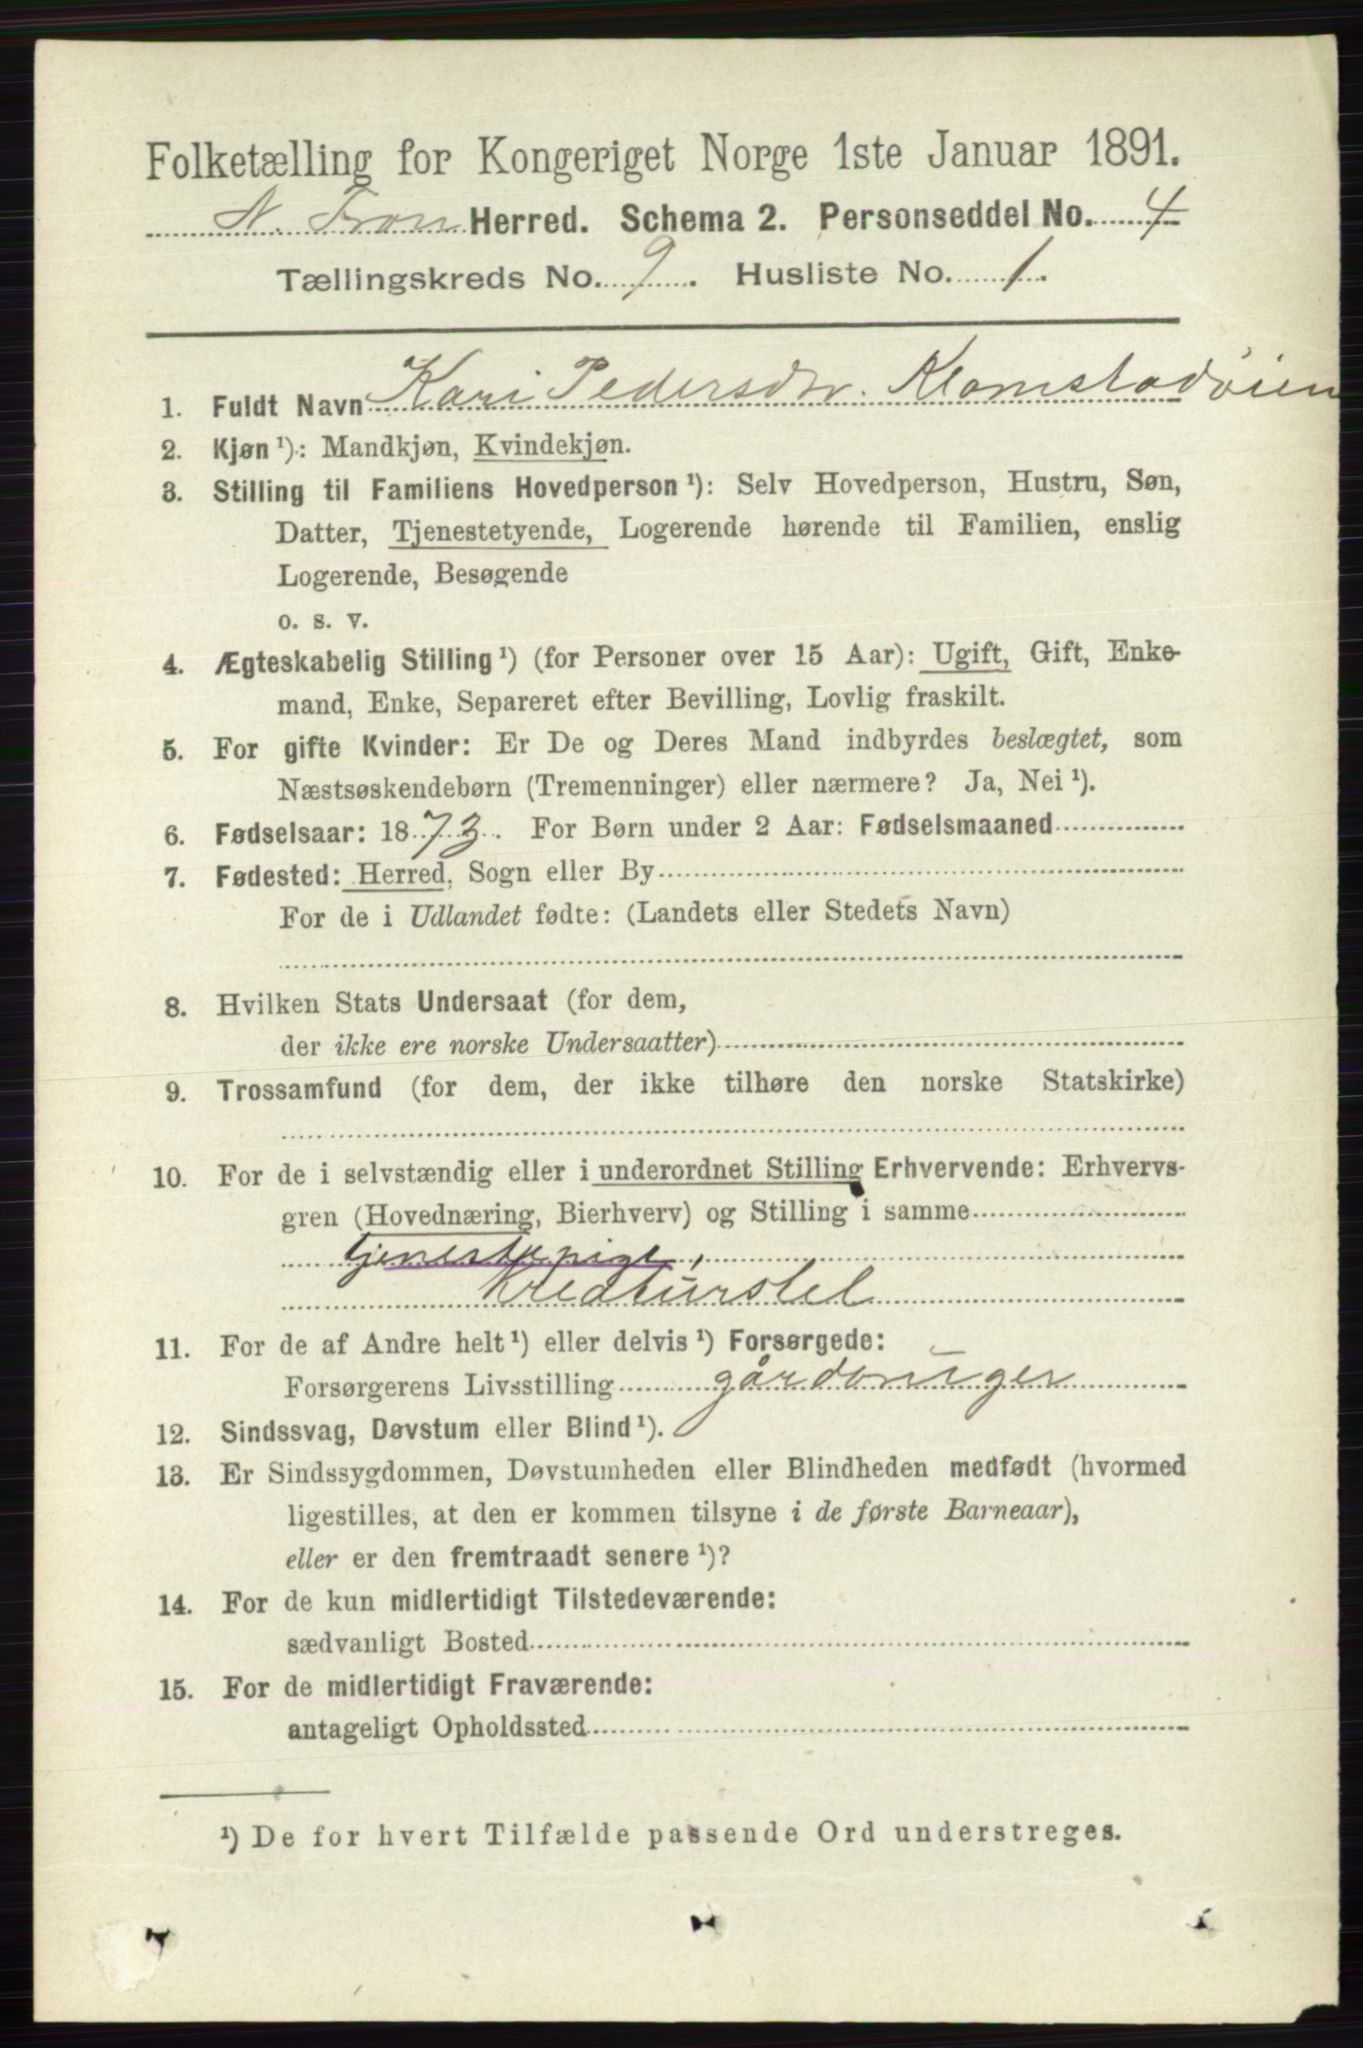 Folketælling for Kongeriget Norge 1ste Januar 1891.
N. Fron Herred. Schema 2. Personseddel No. 4
Tællingskreds No. 9. Husliste No. 1.
1. Fuldt Navn Kari Pedersdtr. Klomstadøien
2. Kjøn ¹): Mandkjøn, Kvindekjøn.
3. Stilling til Familiens Hovedperson ¹): Selv Hovedperson, Hustru, Søn,
Datter, Tjenestetyende, Logerende hørende til Familien, enslig
Logerende, Besøgende
o. s. v.
4. Ægteskabelig Stilling ¹) (for Personer over 15 Aar): Ugift, Gift, Enke-
mand, Enke, Separeret efter Bevilling, Lovlig fraskilt.
5. For gifte Kvinder: Er De og Deres Mand indbyrdes beslægtet, som
Næstsøskendebørn (Tremenninger) eller nærmere? Ja, Nei ¹).
6. Fødselsaar: 1873. For Børn under 2 Aar: Fødselsmaaned
7. Fødested: Herred, Sogn eller By
For de i Udlandet fødte: (Landets eller Stedets Navn)
8. Hvilken Stats Undersaat (for dem,
der ikke ere norske Undersaatter)
9. Trossamfund (for dem, der ikke tilhøre den norske Statskirke)
10. For de i selvstændig eller i underordnet Stilling Erhvervende: Erhvervs-
gren (Hovednæring, Bierhverv) og Stilling i samme
tjenestepige,
Kreaturstel
11. For de af Andre helt ¹) eller delvis ¹) Forsørgede:
Forsørgerens Livsstilling gårdbruger
12. Sindssvag, Døvstum eller Blind ¹).
13. Er Sindssygdommen, Døvstumheden eller Blindheden medfødt (hvormed
ligestilles, at den er kommen tilsyne i de første Barneaar),
eller er den fremtraadt senere ¹)?
14. For de kun midlertidigt Tilstedeværende:
sædvanligt Bosted
15. For de midlertidigt Fraværende:
antageligt Opholdssted
¹) De for hvert Tilfælde passende Ord understreges.